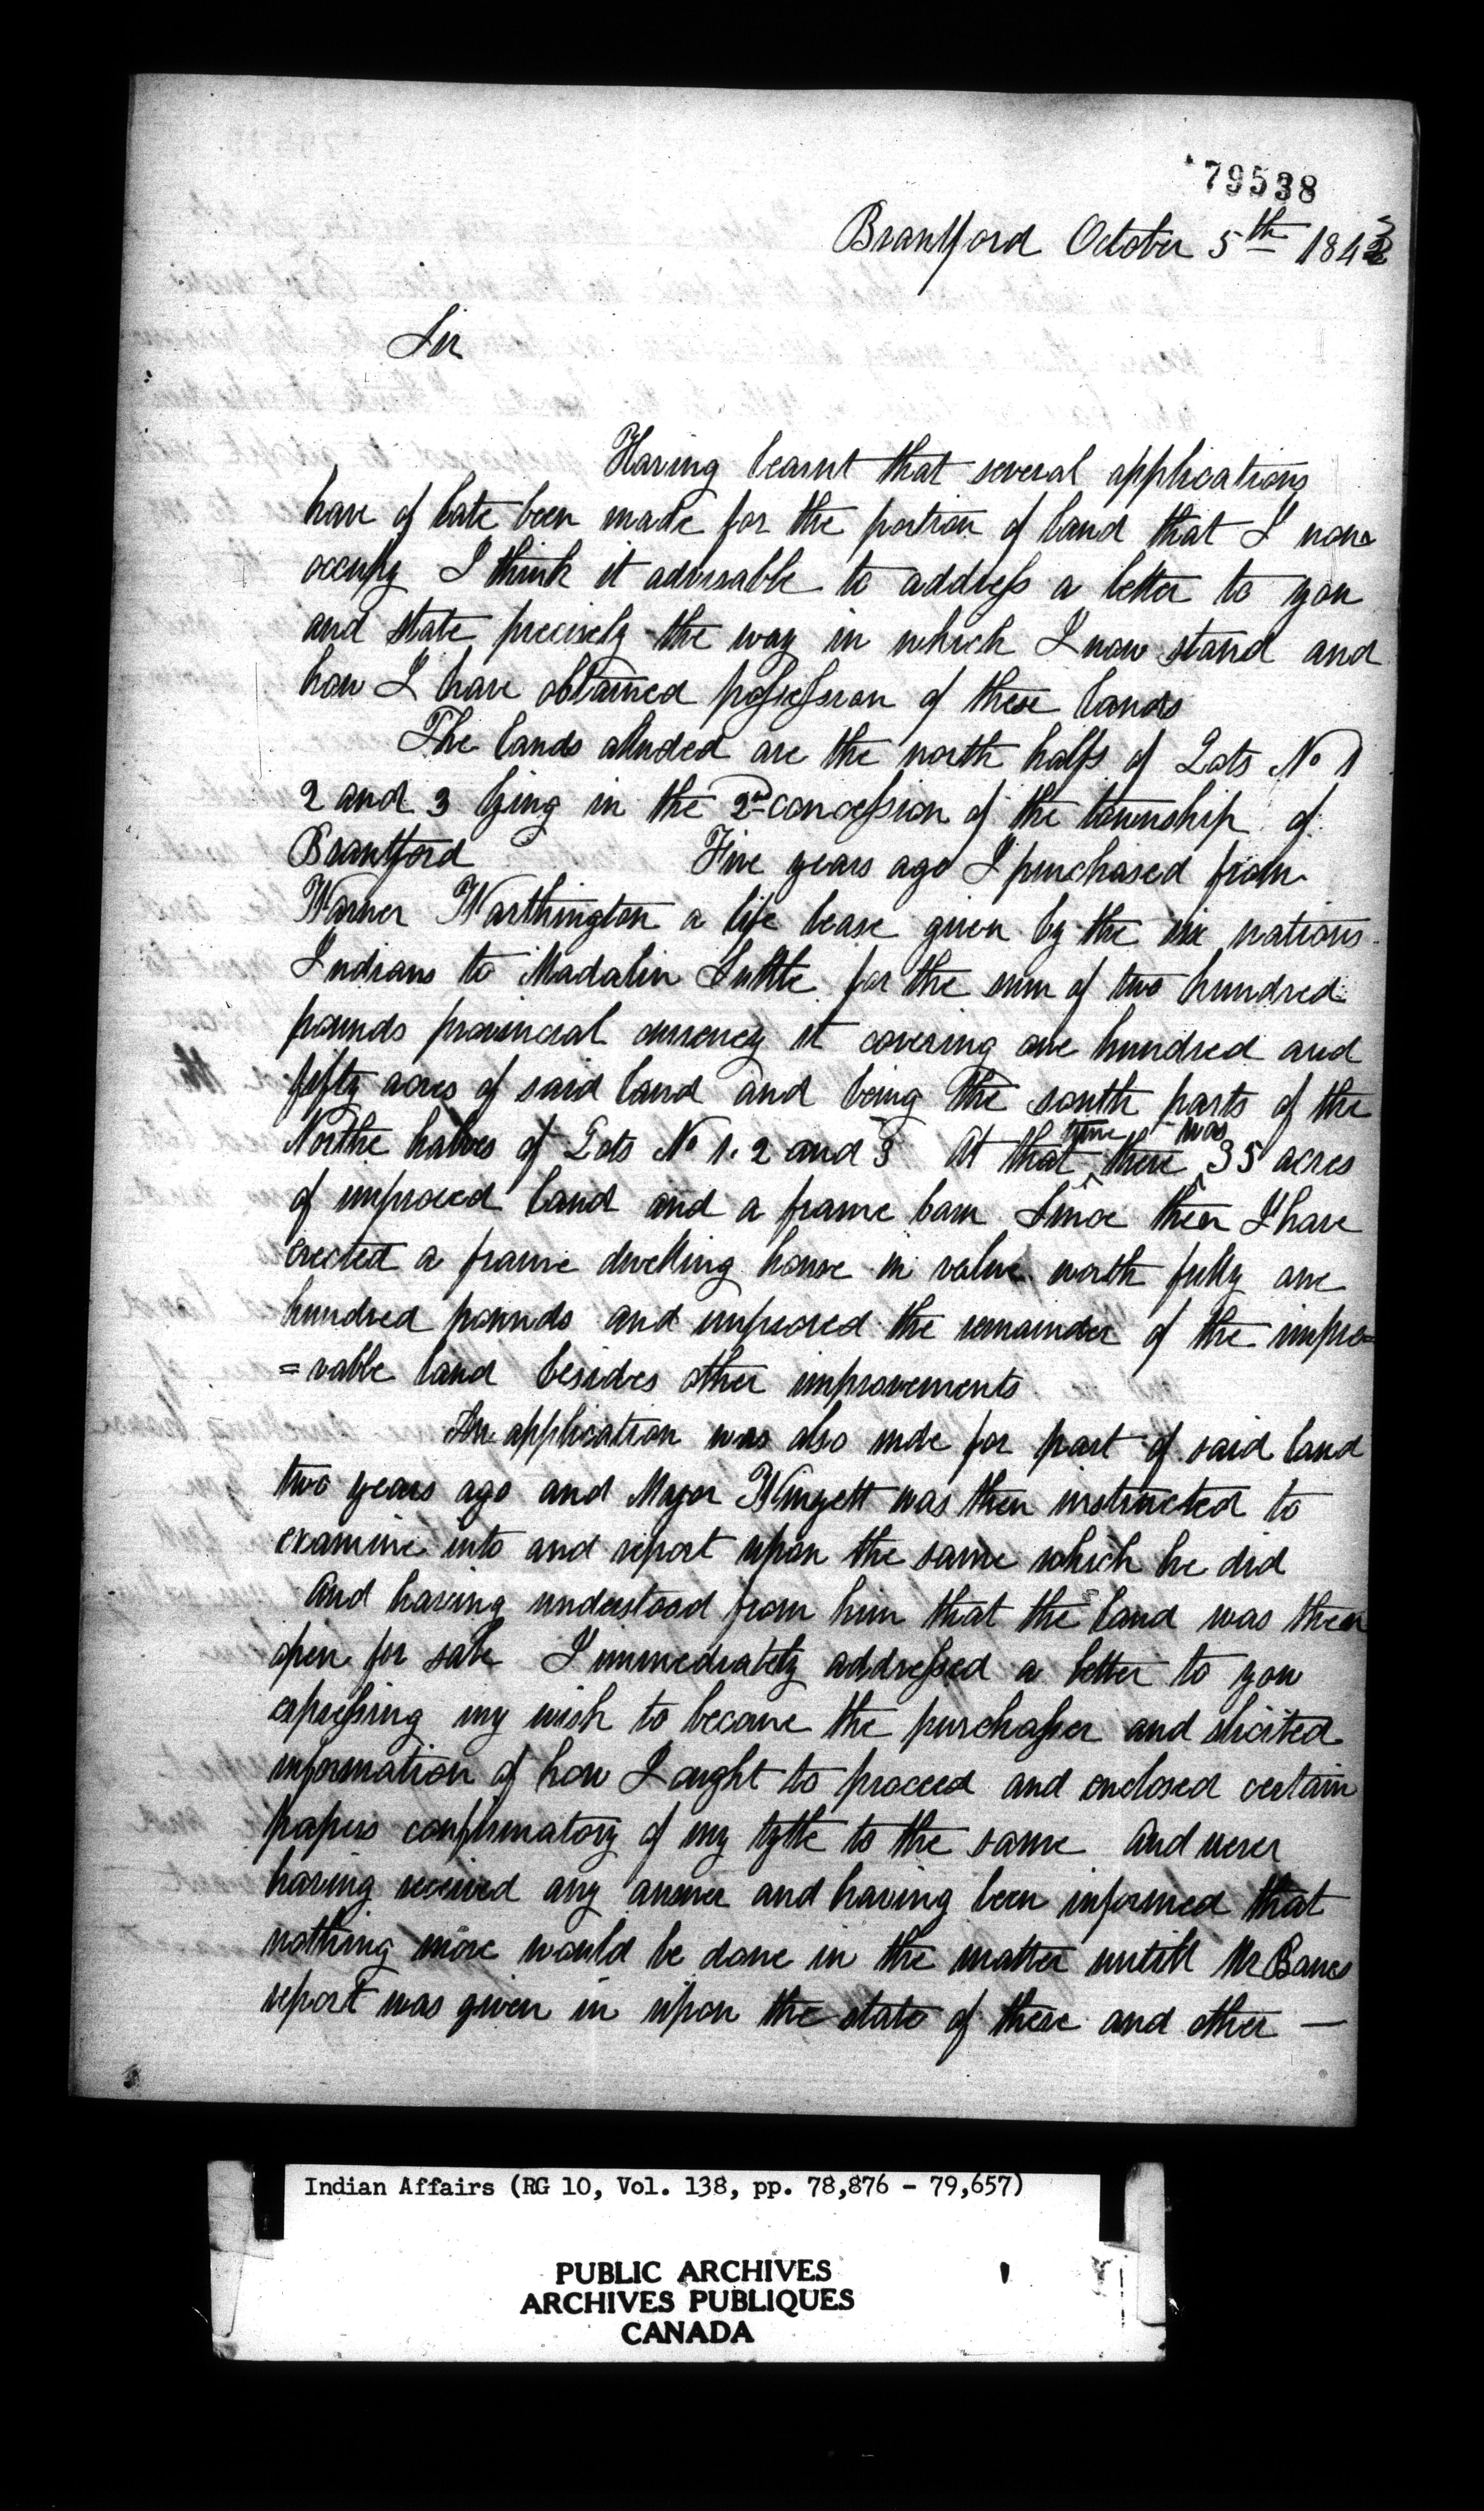 79538
Brantford October 5th 1843
Sir
Having learnt that several applications
have of late been made for the portion of land that I now
occupy I think it advisable to address a letter to you
and state precisely the way in which I now stand and
how I have obtained possession of these lands
The lands alluded are the north halfs of Lots No 1
2 and 3 lying in the 2nd concession of the township of
Brantford Five years ago I purchased from
Warner Warthington a life lease given by the six nations
Indians to Madalin Suttle for the sum of two hundred
pounds provincial currency it covering one hundred and
fifty acres of said land and being the south parts of the
Northe halves of Lots No 1. 2 and 3 At that time there was 35 acres
of improved land and a frame barn Since then I have
erected a frame dwelling house in value worth fully one
hundred pounds and improved the remainder of the impro=
=vable land besides other improvements
An application was also mde for part of said land
two years ago and Major Wingett was then instructed to
examine into and report upon the same which he did
And having understood from him that the land was then
open for sale I immediately addressed a letter to you
expressing my wish to become the purchasser and slicited
information of how I ought to proceed and enclosed certain
papers confirmatory of my tytle to the same And never
having received any answer and having been informed that
nothing more would be done in the matter untill Mr Banes
report was given in upon the state of these and other —
Indian Affairs (RG 10, Vol. 138, pp. 78,876 - 79,657)
PUBLIC ARCHIVES
ARCHIVES PUBLIQUES
CANADA